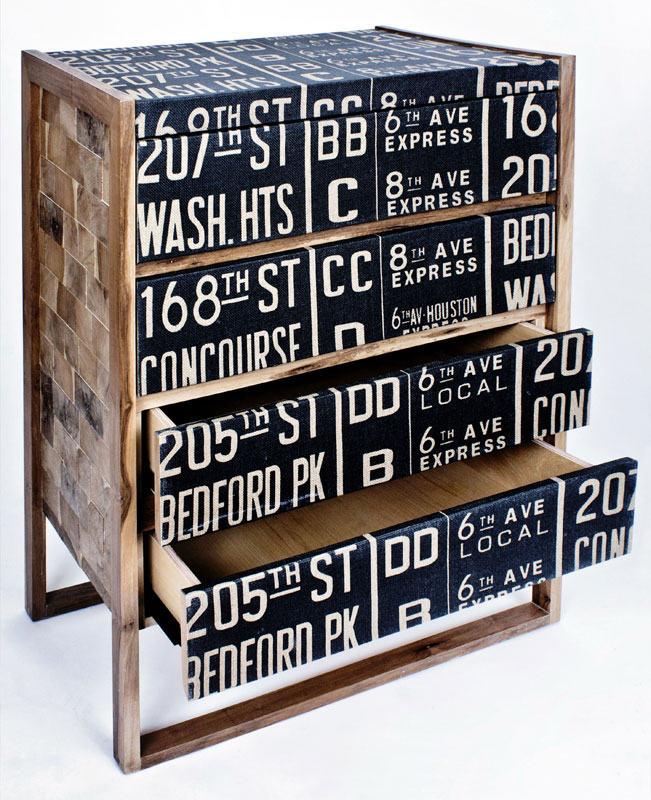 BEDFORD PK
DD
LOCAL
207TH ST
WASH. HTS
C
168TH ST CC 8TH AVE
207TH ST BB 6TH AVE EXPRESS 168
WASH. HTS C 8TH AVE EXPRESS 20
168TH ST CC 8TH AVE EXPRESS BED
CONCOURSE D 6TH AV-HOUSTON EXPRESS WA
205TH ST DD 6TH AVE LOCAL 207
BEDFORD PK B 6TH AVE EXPRESS CON
205TH ST DD 6TH AVE LOCAL 207
BEDFORD PK B 6TH AVE EXPRESS CON